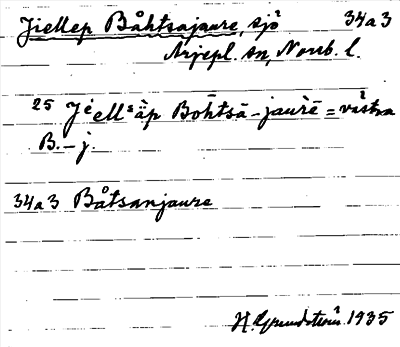 Jiellep Båhtsajaure, sjö 34a3
Arjepl. sn, Norrb. l.
25 Jiellᵉäp Bohtsā-jaurē = västra
B.-j.
34a3 Båtsanjaure
H. Grundström 1935